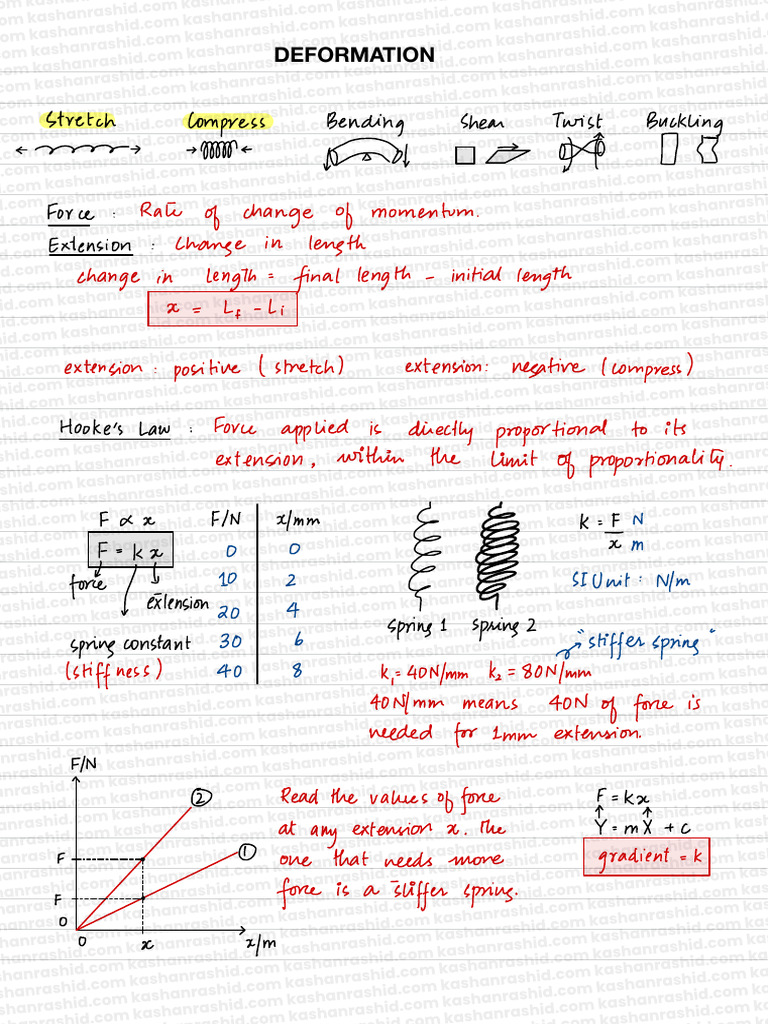 DEFORMATION
Stretch Compress Bending Shear Twist Buckling
Force : Rate of change of momentum.
Extension : Change in length
change in length = final length - initial length
x = Lf - Li
extension : positive (stretch) extension: negative (compress)
Hooke's Law : Force applied is directly proportional to its
extension, within the limit of proportionality.
F ∝ x
F = kx
force
extension
spring constant
(stiffness)
F/N x/mm
0 0
10 2
20 4
30 6
40 8
spring 1 spring 2
k = F/x N/m
SI Unit : N/m
"stiffer spring"
k₁ = 40N/mm k₂ = 80N/mm
40N/mm means 40N of force is
needed for 1mm extension.
F/N
2
1
F
F
0
0 x x/m
Read the values of force
at any extension x. The
one that needs more
force is a stiffer spring.
F = kx
Y = mX + c
gradient = k
kashanrashid.com